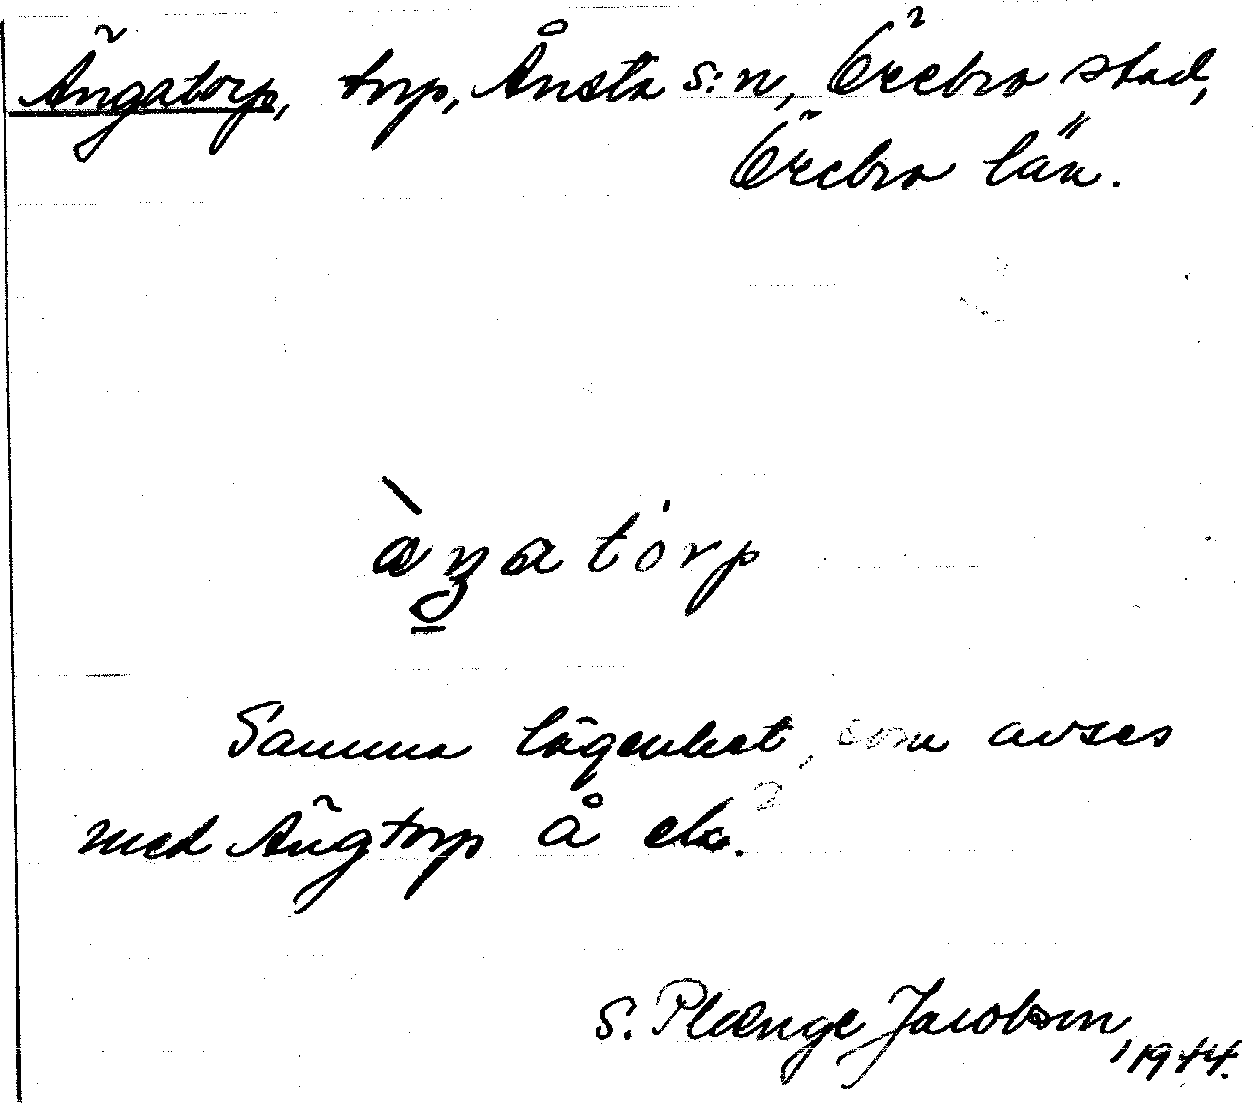 Ängatorp, torp, Ånsta s:n, Örebro stad,
Örebro län.
àŋatòrp
Samma lägenhet, som avses
med Ängtorp å ek.
S. Plænge Jacobson, 1944.